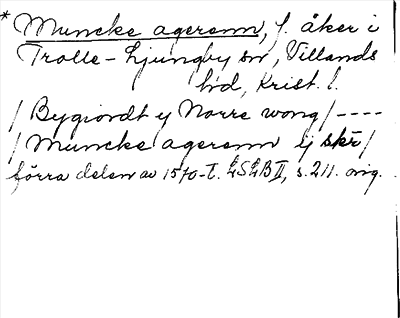 * Muncke agerenn, f. åker i
Trolle-Ljungby sn, Villands
hd, Krist. l.
/ Bygiordt y Norre wong / ----
/ Muncke agerenn ij skr /
förra delen av 1570-t. LSLB II, s. 211. orig.